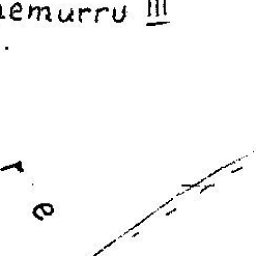 emurru III
r
e